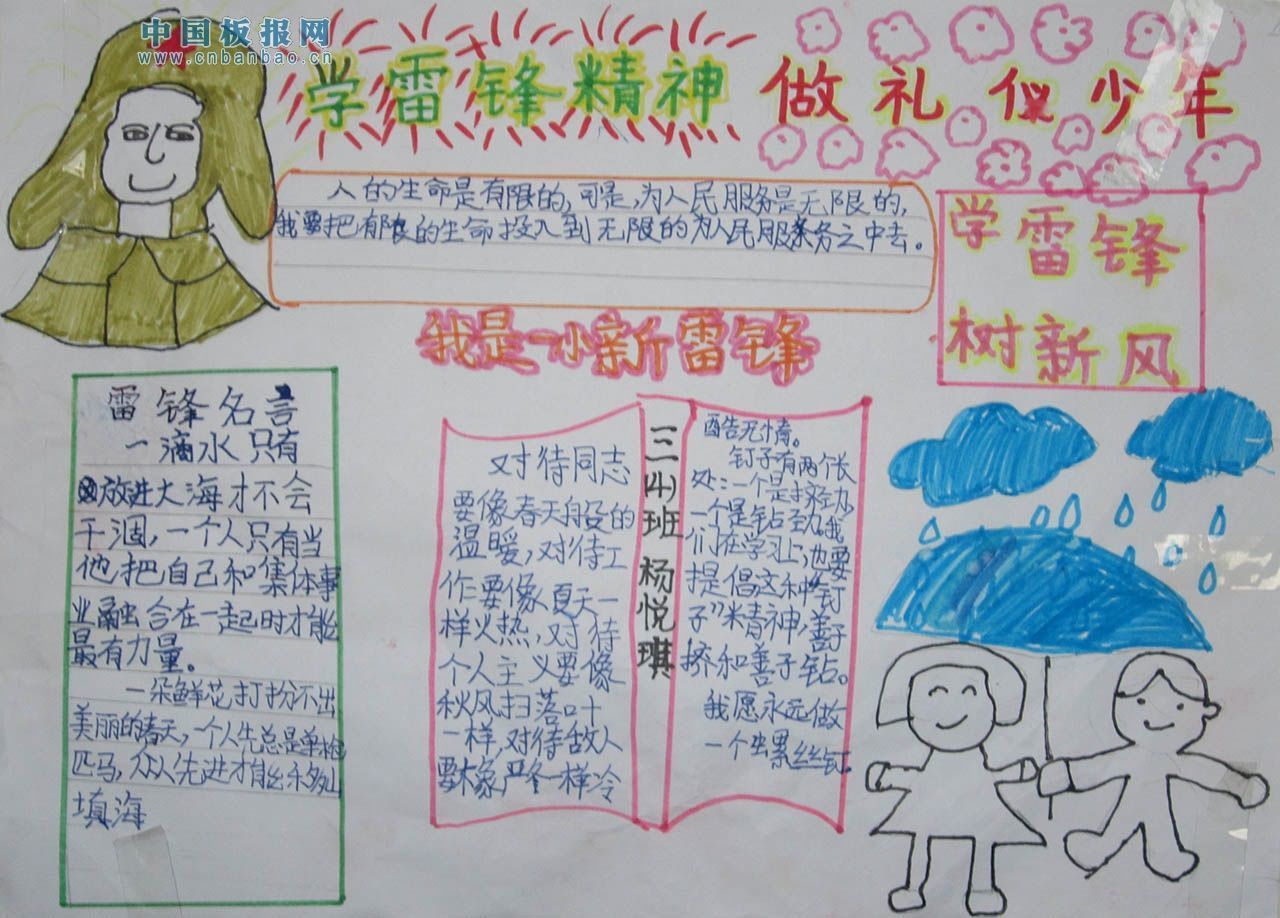 中国板报网
www.cnbanbao.cn
学雷锋精神 做礼仪少年
人的生命是有限的,可是,为人民服务是无限的,
我要把有限的生命投入到无限的为人民服务之中去。
学雷锋
树新风
我是一小新雷锋
雷锋名言
一滴水只有
放进大海才不会
干涸,一个人只有当
他把自己和集体事
业融合在一起时才能
最有力量。
一朵鲜花打扮不出
美丽的春天,一个人先总是单枪
匹马,众人先进才能移山
填海
对待同志
要像春天般的
温暖,对待工
作要像夏天一
样火热,对待
个人主义要像
秋风扫落叶
一样,对待敌人
要像严冬一样冷
三(4)班 杨悦琪
酷无情。
钉子有两个长
处:一个是挤劲,
一个是钻劲,我
们在学习上,也要
提倡这种“钉
子”精神,善于
挤和善于钻。
我愿永远做
一个螺丝钉